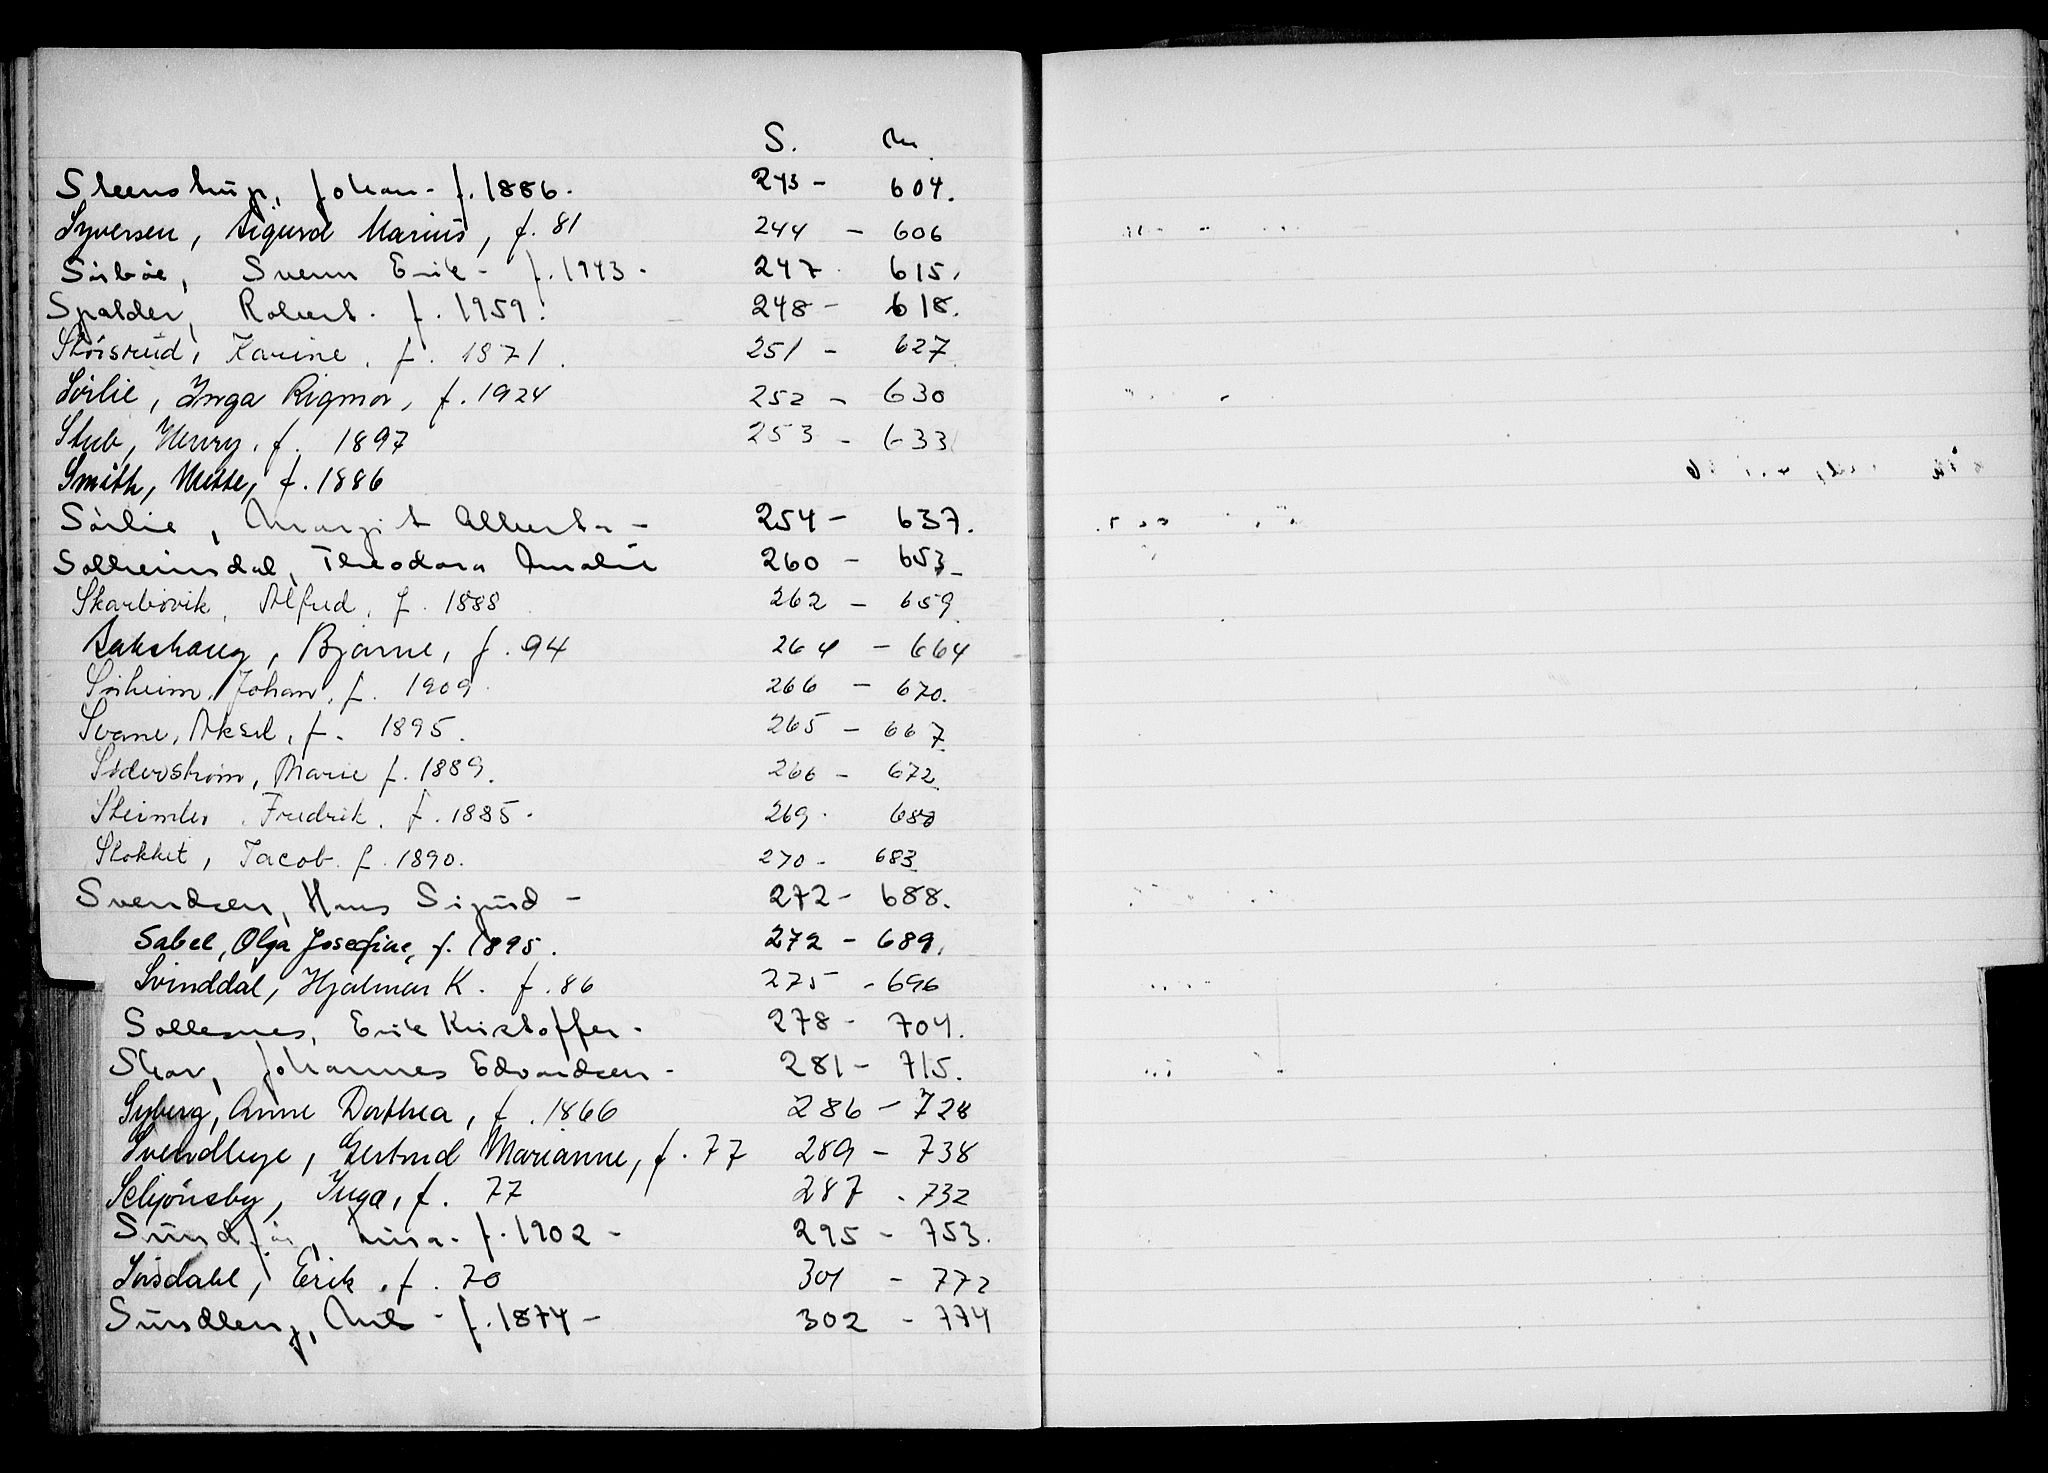 S. Nr.
Steenstrup, Johan - f. 1886. 243 - 604.
Syversen, Sigurd Marius, f. 81 244 - 606
Sörböe, Svenn Erik - f. 1943 - 247 615.
Spalder, Robert. f. 1959. 248 - 618.
Störsrud, Karine, f. 1871. 251 - 627
Sörlie, Inga Rigmor, f. 1924 252 - 630
Stub, Henry, f. 1897 253 - 633
Smith, Mette, f. 1886
Sörlie, Margit Alberta - 254 - 637.
Solheimsdal, Theodora Amalie 260 - 653 -
Skarbövik, Alfred, f. 1888 262 - 659
Bjarne, f. 94 264 - 664
Sörheim, Johan, f. 1909. 266 - 670.
Svane, Aksel, f. 1895. 265 - 667
Söderström, Marie f. 1889. 266 - 672
Steimler, Fredrik. f. 1885. 269. 680
Stokket, Jacob. f. 1890. 270 - 683
Svendsen, Hans Sigurd - 272 - 688.
Sabel, Olga Josefine, f. 1895. 272 - 689.
Svinddal, Hjalmar K. f. 86 275 - 696
Sollesnes, Erik Kristoffer - 278 - 704.
Skar, Johannes Edvardsen - 281 - 715.
Syberg, Anne Dorthea, f. 1866 286 - 728
Gertrud Marianne, f. 77 289 - 738
Schjönsby, Inga, f. 77 287 - 732
f. 1902 - 295 - 753.
Sörsdahl, Erik, f. 70 301 - 772
Sundberg, Nils - f. 1874 - 302 - 774